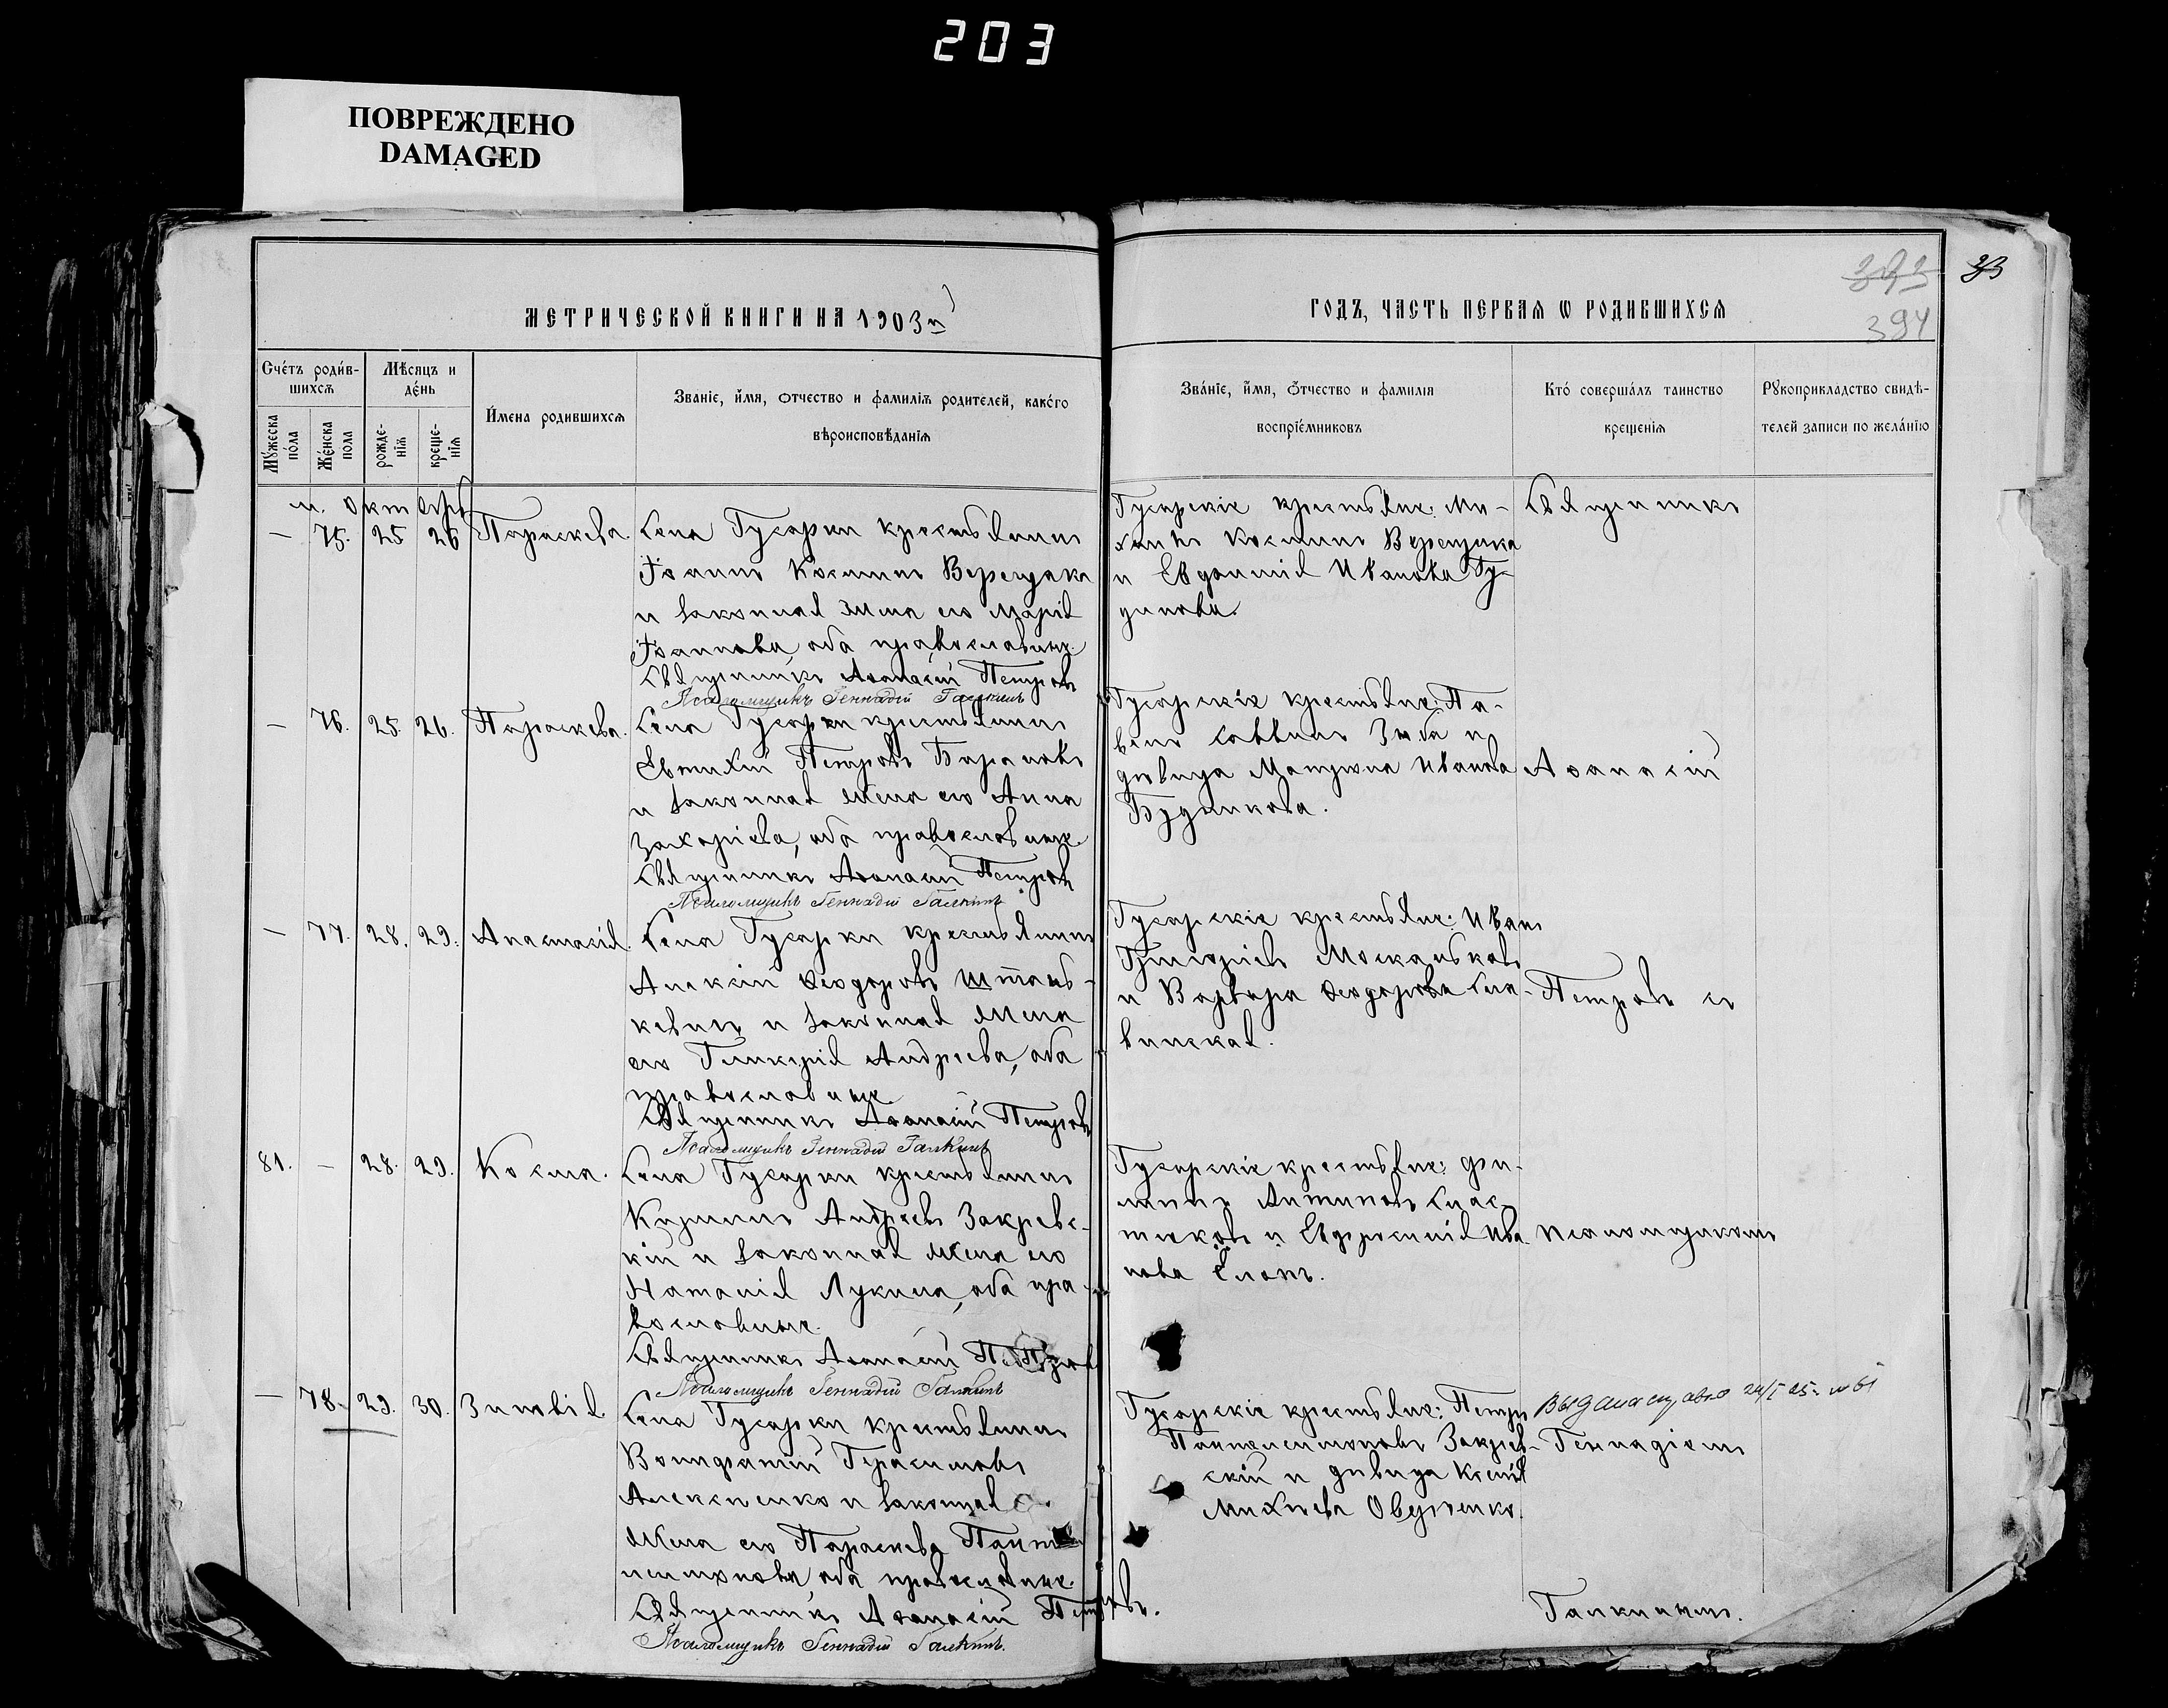 203
ПОВРЕЖДЕНО
DAMAGED
МЕТРИЧЕСКОЙ КНИГИ НА 1903й
ГОДЪ, ЧАСТЬ ПЕРВАЯ Ѡ РОДИВШИХСЯ
393
394
Счетъ родив-
шихся
Мѣсяцъ и
день
Мужеска
пола
Женска
пола
рожде-
нія
креще-
нія
Имена родившихся
Званіе, имя, отчество и фамилія родителей, какого
вѣроисповѣданія
Званіе, имя, отчество и фамилія
воспріемниковъ
Кто совершалъ таинство
крещенія
Рукоприкладство свидѣ-
телей записи по желанію
м. Октябрь
— 75. 25 26 Параскева. Села Гусарки крестьянинъ
Іоаннъ Косминъ Верещака
и законная жена его Марія
Іоаннова, оба православные.
Священникъ Аѳанасій Петровъ
Псаломщикъ Геннадій Галкинъ
Гусарскіе крестьяне: Ми-
хаилъ Косминъ Верещака
и Евдокія Иванова Гу-
динова.
Священникъ
— 76. 25. 26. Параскева. Села Гусарки крестьянинъ
Евтихій Петровъ Барановъ
и законная жена его Анна
Захаріева, оба православные.
Священникъ Аѳанасій Петровъ
Псаломщикъ Геннадій Галкинъ
Гусарскіе крестьяне: Па-
велъ Саввинъ Зюба и
дѣвица Матрона Иванова
Будникова.
Аѳанасій
— 77. 28. 29. Анастасія. Села Гусарки крестьянинъ
Алексій Ѳеодоровъ Штань-
кевичъ и законная жена
его Гликерія Андреева, оба
православные.
Священникъ Аѳанасій Петровъ
Псаломщикъ Геннадій Галкинъ
Гусарскіе крестьяне: Иванъ
Григоріевъ Москальковъ
и Варвара Ѳеодорова Сла-
винская.
Петровъ съ
81. — 28. 29. Косма. Села Гусарки крестьянинъ
Кириллъ Андреевъ Закревс-
кій и законная жена его
Наталія Лукина, оба пра-
вославные.
Священникъ Аѳанасій Петровъ
Псаломщикъ Геннадій Галкинъ
Гусарскіе крестьяне: Фи-
липпъ Антиповъ Слас-
тековъ и Евфросинія Ива-
нова
псаломщикомъ
— 78. 29. 30. Зиновія. Села Гусарки крестьянинъ
Вонифатій Герасимовъ
Алексѣенко и законная
жена его Параскева Панте-
леимонова, оба православные.
Священникъ Аѳанасій Петровъ.
Псаломщикъ Геннадій Галкинъ.
Гусарскіе крестьяне: Петръ
Пантелеимоновъ Закрев-
скій и дѣвица Ксенія
Михеева Овдѣенко.
Геннадіемъ
Галкинымъ.